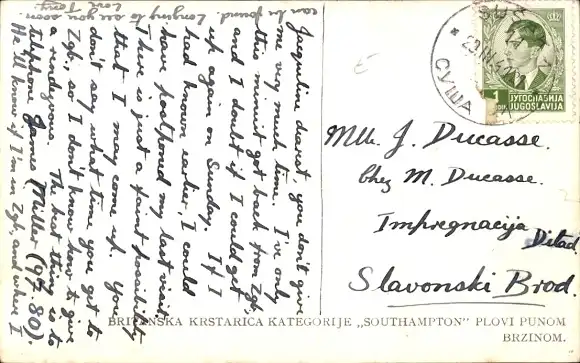 Jacqueline dearest, you don't give
me very much time. I've only
this minute got back from Zgb,
and I doubt if I could get
up again on Sunday. If I
had known earlier, I could
have postponed my last visit.
There is just a faint possibility
that I may come up. You
don't say what time you get to
Zgb., so I don't know how to give
a rendezvous. The best thing is to
telephone James Miller (97.80).
He'll know if I'm in Zgb, and where I
can be found. Longing to see you soon
Love
1
ЈУГОСЛАВИЈА
JUGOSLAVIJA
Mlle J. Ducasse.
chez M. Ducasse.
Impregnacija Ditad.
Slavonski Brod.
BRITANSKA KRSTARICA KATEGORIJE „SOUTHAMPTON" PLOVI PUNOM
BRZINOM.